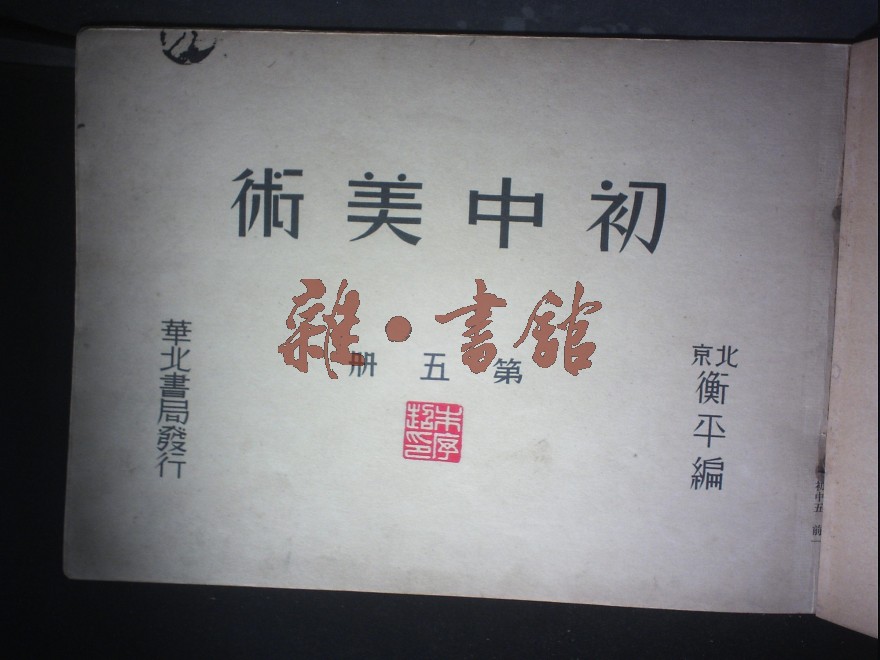 初中美術
雜·書館
第五冊
北京
衡平編
華北書局發行
初中五 前一